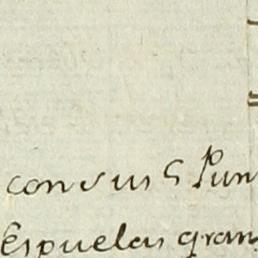 con sus 5 Pun
Espuelas gran